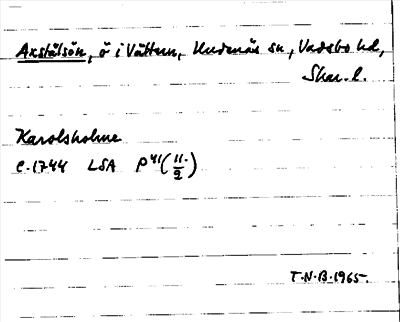 Axstålsön, ö i Vättern, Undenäs sn, Vadsbo hd,
Skar. l.
Karolsholme
c. 1744 LSA P41 (11/2)
T.N.B. 1965.